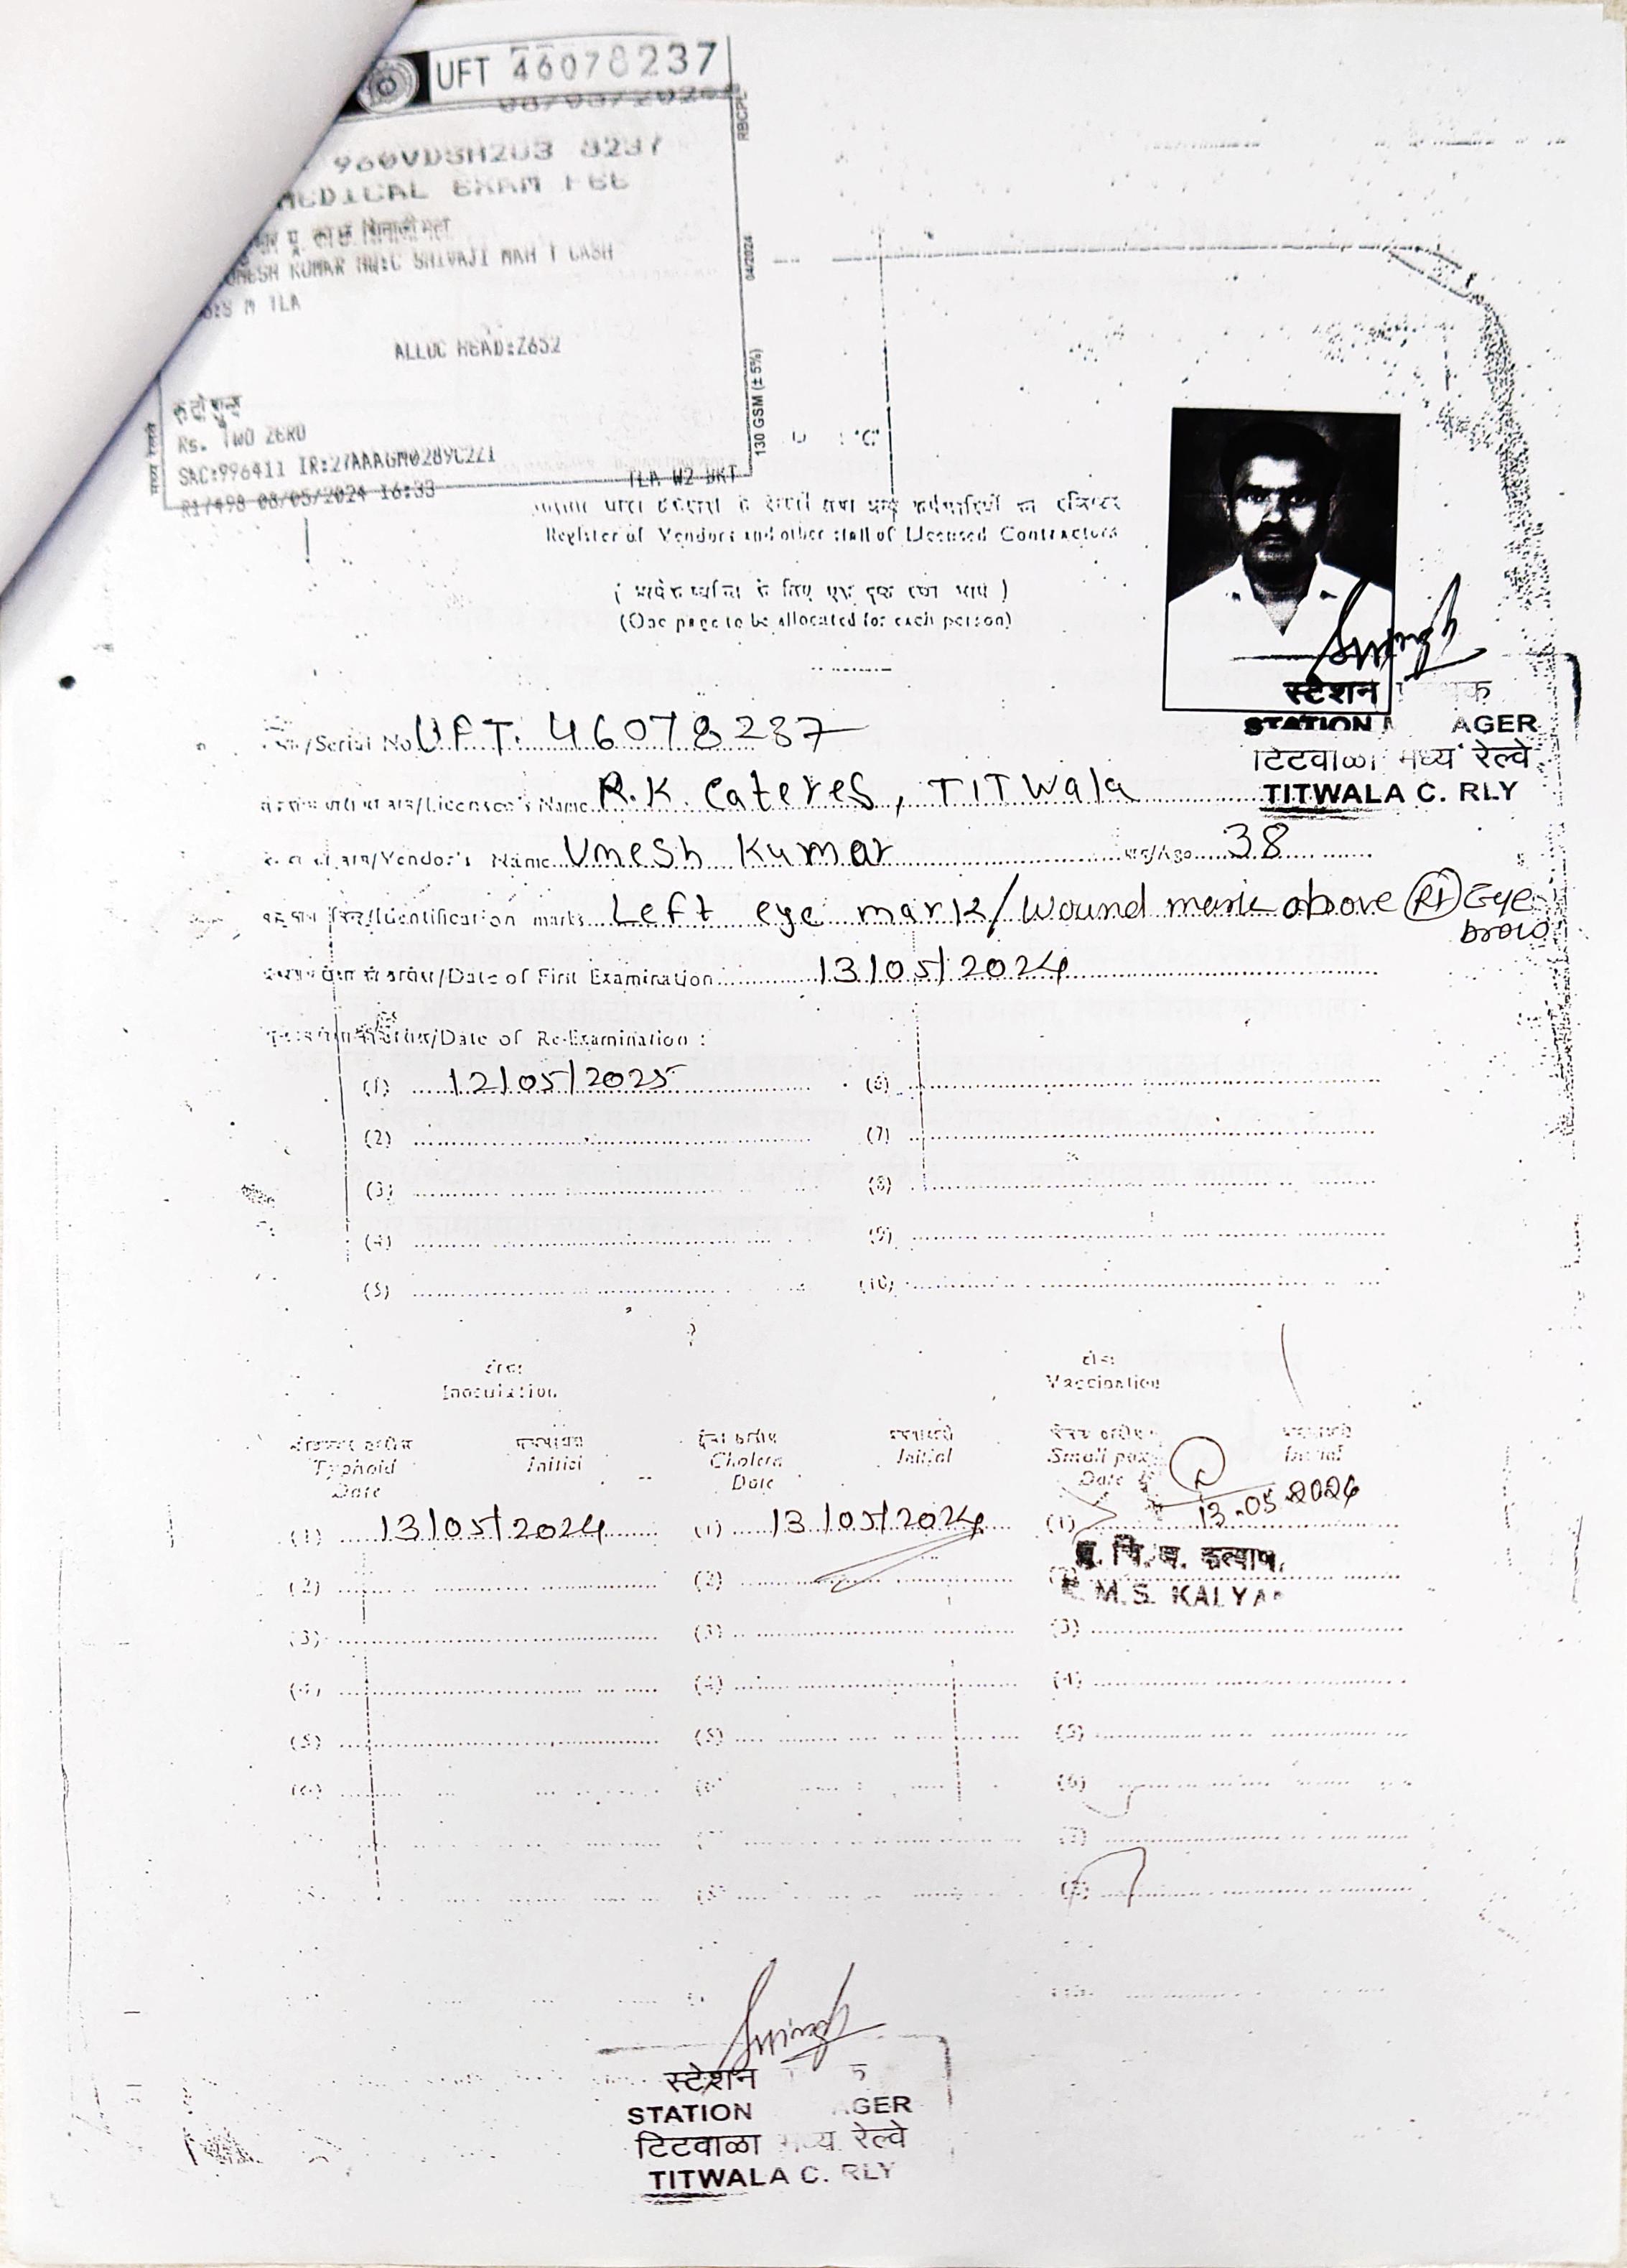 UFT 46078237
RBCPL
MEDICAL EXAM FEE
04/2024
KUMAR HQ:C SHIVAJI MAH T CASH
S M TLA
ALLOC HEAD:Z652
130 GSM (± 5%)
Rs. TWO ZERO
SAC:996411 IR:27AAAGM0289C2Z1
08/05/2024 16:33
TLA W2 BKT
Register of Vendors and other staff of Licensed Contractors
(One page to be allocated for each person)
स्टेशन
STATION AGER
टिटवाळा मध्य रेल्वे
TITWALA C. RLY
/Serial No. UFT. 46078237
/Licensee's Name R.K. Cateres, TITWala
/Vendor's Name Umesh Kumar /Age 38
/Identification marks Left eye mark/wound mark above (Rt) Eye brow
/Date of First Examination 13/05/2024
/Date of Re-Examination :
(1) 12/05/2025 (6)
(2) (7)
(3) (8)
(4) (9)
(5) (10)
Inoculation Vaccination
Typhoid Date Initial Cholera Date Initial Small pox Date Initial
13.05.2024
(1) 13/05/2024 (1) 13/05/2024 (1)
(2) (2)
M.S. KALYA
(3) (3) (3)
(4) (4) (4)
(5) (5) (5)
(6) (6) (6)
(7)
(8) (8)
स्टेशन
STATION AGER
टिटवाळा मध्य रेल्वे
TITWALA C. RLY